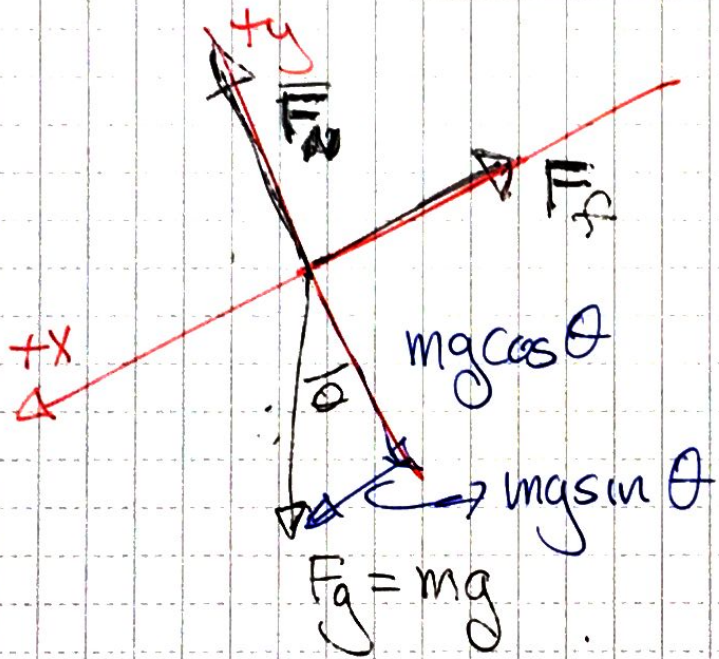 +y
F_N
F_f
+x
mg cos θ
θ
mg sin θ
F_g = mg